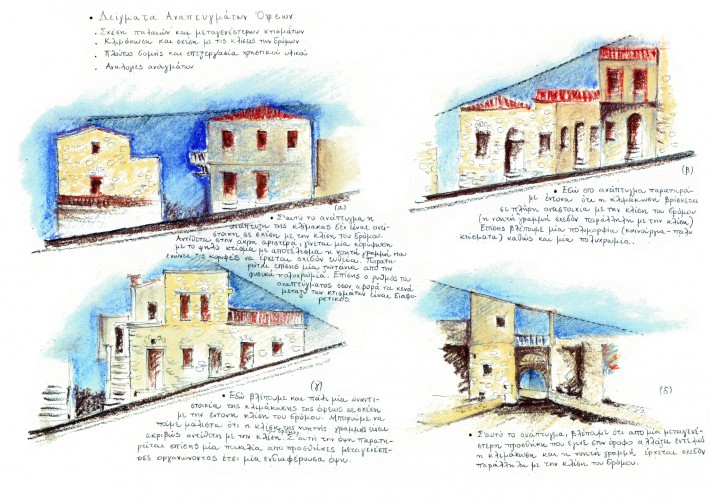 • Δείγματα Αναπτυγμάτων Όψεων
. Σχέση παλαιών και μεταγενέστερων κτισμάτων
. Κλιμάκωση και σχέση με τις κλίσεις των δρόμων
. Πλούτος δομής και επεξεργασία χρηστικού υλικού
. Αναλογίες ανοιγμάτων
(α)
• Σ'αυτό το ανάπτυγμα η
ανάπτυξη της κλίμακας δεν είναι αντί-
στοιχη σε σχέση με την κλίση του δρόμου.
Αντίθετα στην άκρη αριστερά, γίνεται μία κορύφωση
με το ψηλό κτίσμα με αποτέλεσμα η νοητή γραμμή που
ενώνει τις κορυφές να έρχεται σχεδόν ευθεία. Παρατη-
ρείται επίσης μία ζωντάνια από την
φυσική πολυχρωμία. Επίσης ο ρυθμός του
αναπτύγματος όσον αφορά τα κενά
μεταξύ των κτισμάτων είναι διαφο-
ρετικός.
(β)
• Εδώ στο ανάπτυγμα παρατηρού-
με έντονα ότι η κλιμάκωση βρίσκεται
σε πλήρη αντιστοιχία με την κλίση του δρόμου
(η νοητή γραμμή σχεδόν παράλληλη με την κλίση)
Επίσης βλέπουμε μία πολυμορφία (καινούργια-παλιά
κτίσματα) καθώς και μία πολυχρωμία.
(γ)
• Εδώ βλέπουμε και πάλι μία αναντι-
στοιχία της κλιμάκωσης της όψεως σε σχέση
με την έντονη κλίση του δρόμου. Μπορούμε να
πούμε μάλιστα ότι η κλίση της νοητής γραμμής είναι
ακριβώς αντίθετη με την κλίση. Σ'αυτή την όψη παρατη-
ρείται επίσης μία ποικιλία από προσθήκες μεταγενέστε-
ρες οργανώνοντας έτσι μία ενδιαφέρουσα όψη.
(δ)
• Σ'αυτό το ανάπτυγμα, βλέπουμε ότι από μία μεταγενέ-
στερη προσθήκη που έγινε στον όροφο αλλάζει εντελώς
η κλιμάκωση και η νοητή γραμμή έρχεται σχεδόν
παράλληλη με την κλίση του δρόμου.